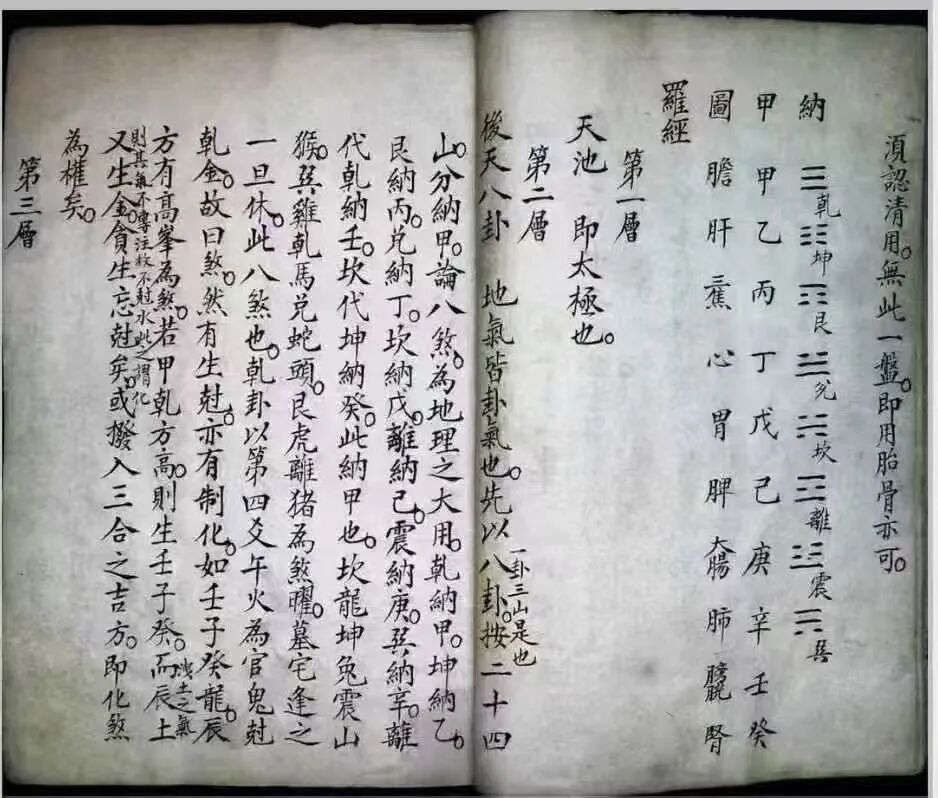 湏認清用。無此一盤。即用胎骨亦可。
納 ☰乾 ☷坤 ☶艮 ☱兌 ☵坎 ☲離 ☳震 ☴巽
甲 甲 乙 丙 丁 戊 己 庚 辛 壬 癸
圖 膽 肝 三焦 心 胃 脾 大腸 肺 膀胱 腎
羅經
第一層
天池 即太極也。
第二層
後天八卦 地氣皆卦氣也。先以八卦。一卦三山是也按二十四
山。分納甲。論八煞。為地理之大用。乾納甲。坤納乙。
艮納丙。兌納丁。坎納戊。離納己。震納庚。巽納辛。離
代乾納壬。坎代坤納癸。此納甲也。坎龍坤兔震山
猴。巽雞乾馬兌蛇頭。艮虎離猪為煞曜。墓宅逢之
一旦休。此八煞也。乾卦以第四爻午火為官鬼尅
乾金。故曰煞。然有生尅。亦有制化。如壬子癸龍。辰
方有高峯為煞。若甲乾方高。則生壬子癸。而辰土洩土之氣
則其氣不專注故不尅水此之謂化
又生金。貪生忘尅矣。或撥入三合之吉方。即化煞
為權矣。
第三層